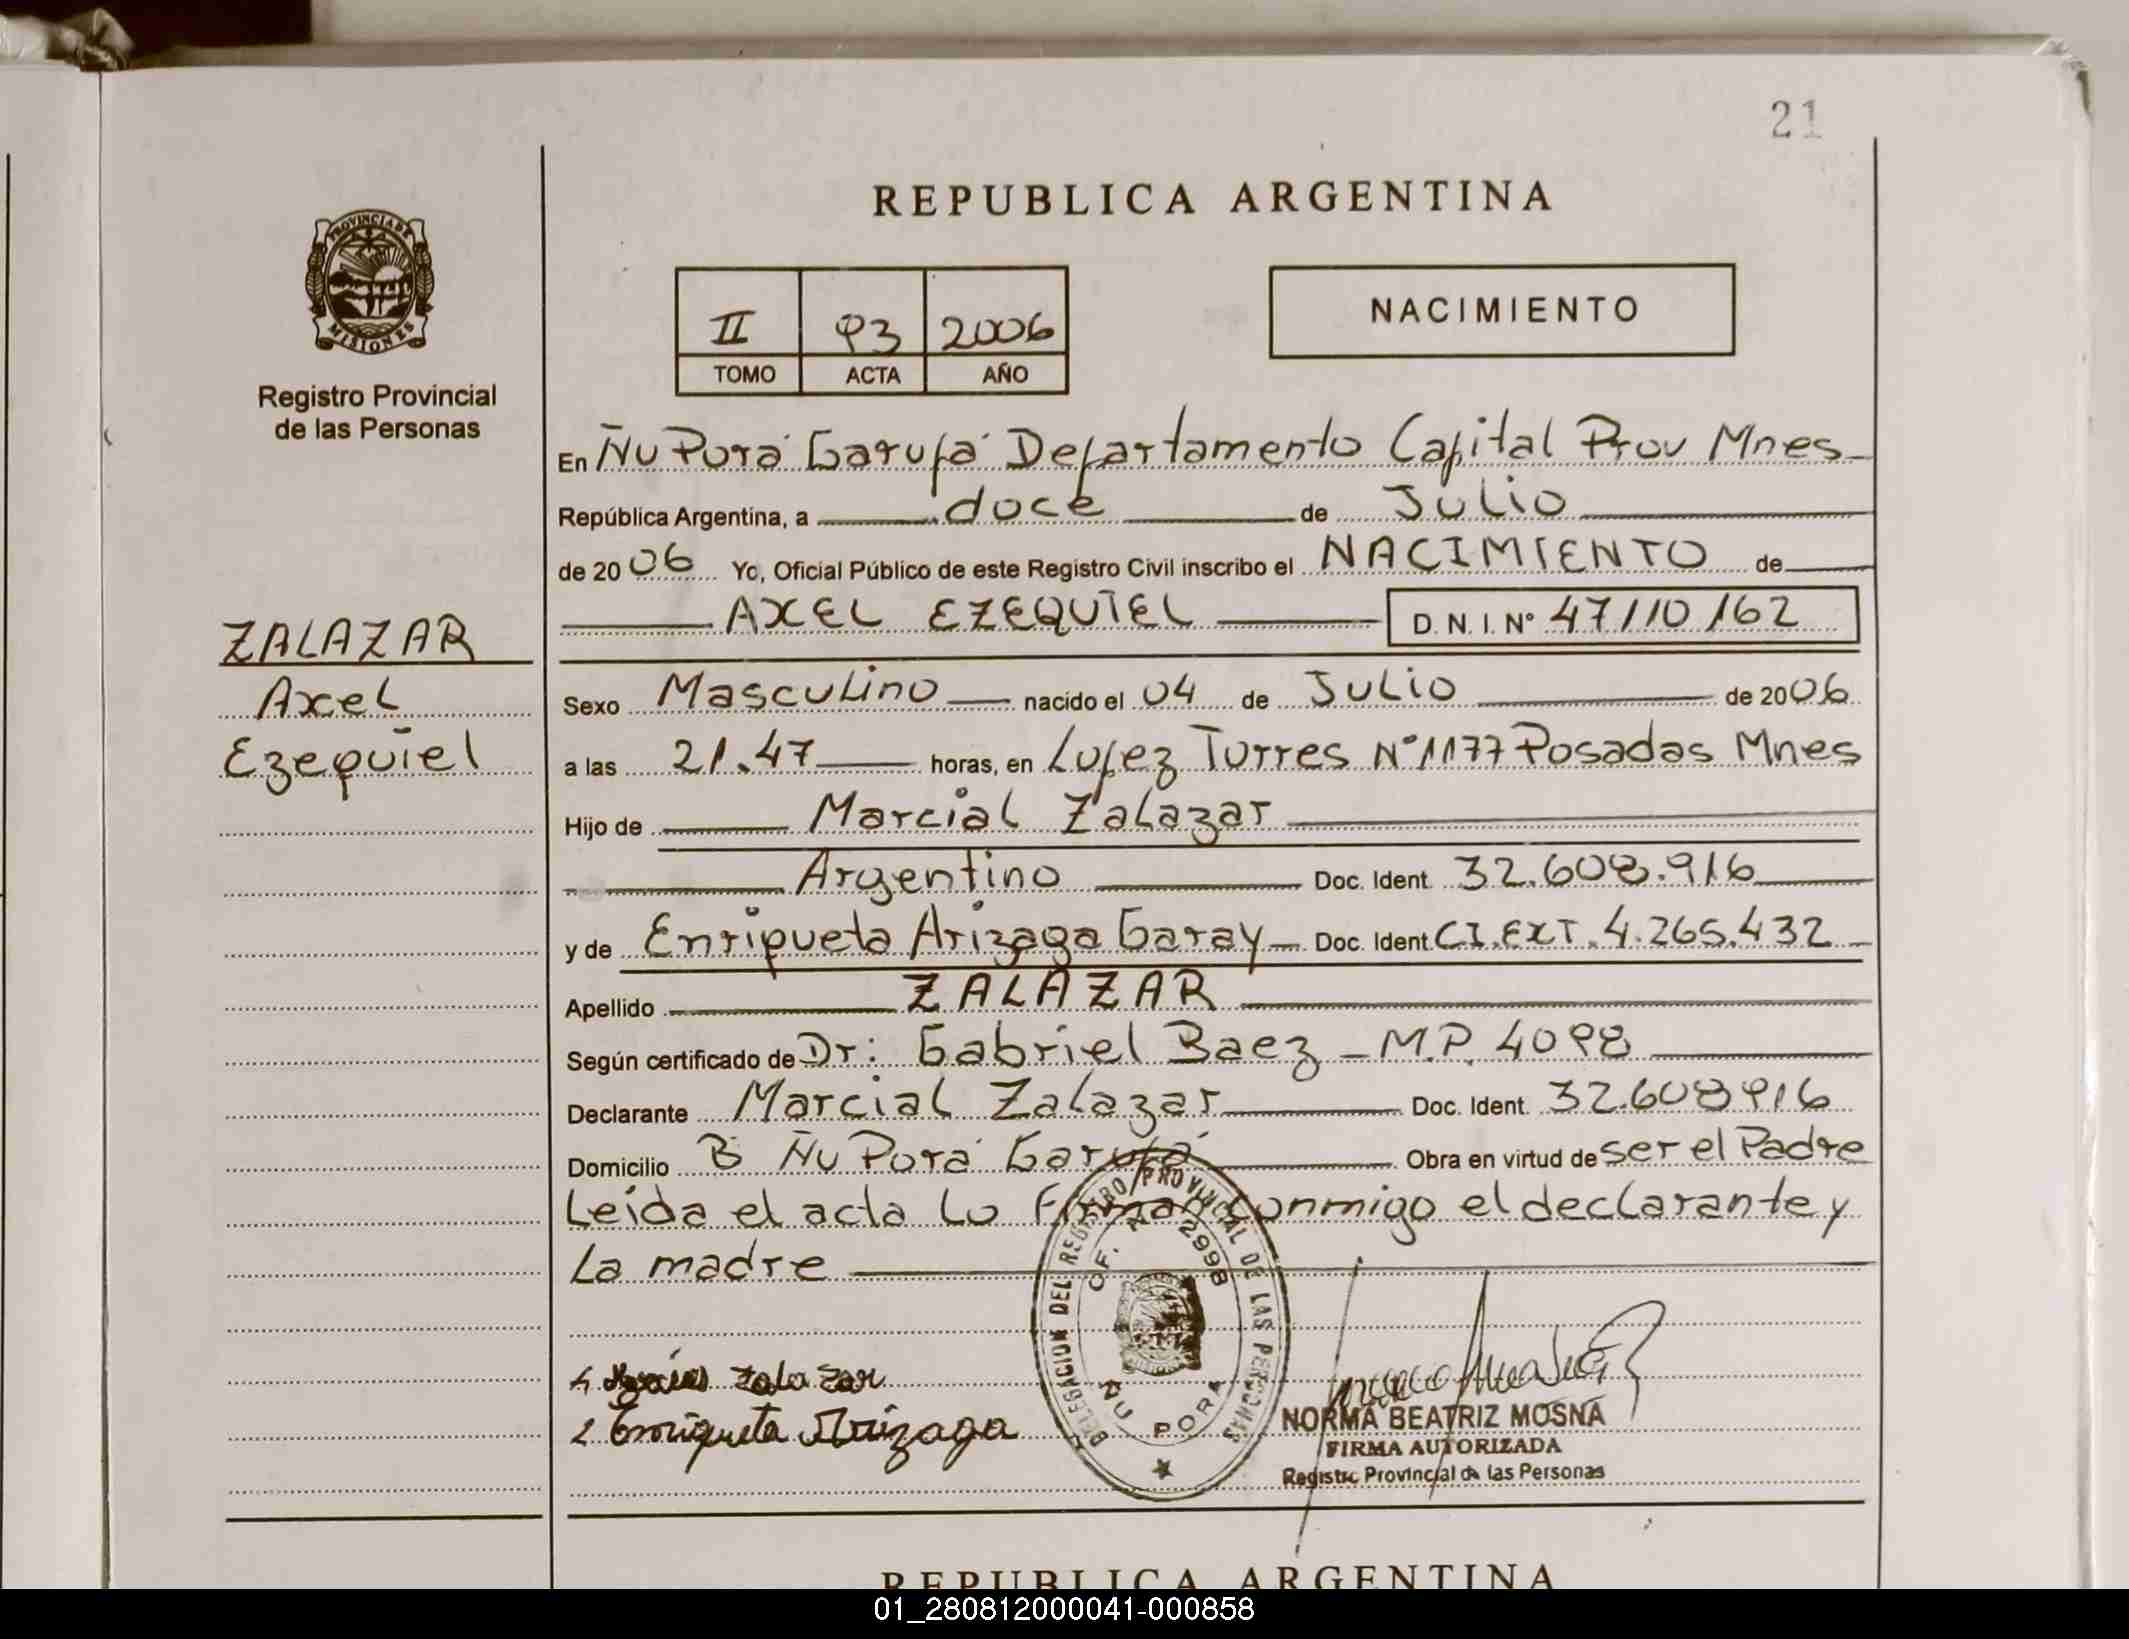 21
REPUBLICA ARGENTINA
PROVINCIA DE
MISIONES
Registro Provincial
de las Personas
II 93 2006
TOMO ACTA AÑO
NACIMIENTO
En Ñu Porá Garupá Departamento Capital Prov Mnes
República Argentina, a doce de Julio
de 2006 Yo, Oficial Público de este Registro Civil inscribo el NACIMIENTO de
AXEL EZEQUIEL D.N.I. Nº 47110162
ZALAZAR
Axel
Ezequiel
Sexo Masculino nacido el 04 de Julio de 2006
a las 21.47 horas, en Lopez Torres Nº 1177 Posadas Mnes
Hijo de Marcial Zalazar
Argentino Doc. Ident. 32.608.916
y de Enriqueta Arizaga Garay Doc. Ident. CI.EXT. 4.265.432
Apellido ZALAZAR
Según certificado de Dr: Gabriel Baez - M.P. 4098
Declarante Marcial Zalazar Doc. Ident. 32.608916
Domicilio Bº Ñu Porá Garupá Obra en virtud de ser el Padre
Leida el acta Lo Firman conmigo el declarante y
La madre
DELEGACION DEL REGISTRO PROVINCIAL DE LAS PERSONAS
OF. 2998
ÑU PORA
Zalazar
2 Enriqueta Arizaga
NORMA BEATRIZ MOSNA
FIRMA AUTORIZADA
Registro Provincial de las Personas
REPUBLICA ARGENTINA
01_280812000041-000858